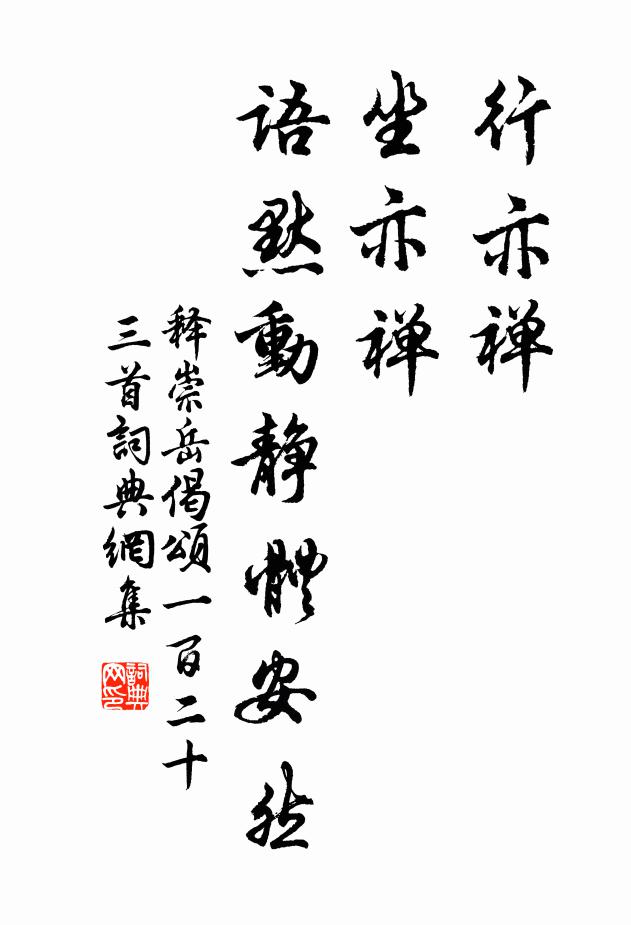 行亦禅
坐亦禅
語默動静體安然
释崇岳偈頌一百二十
三首詞典網集
詞典網印